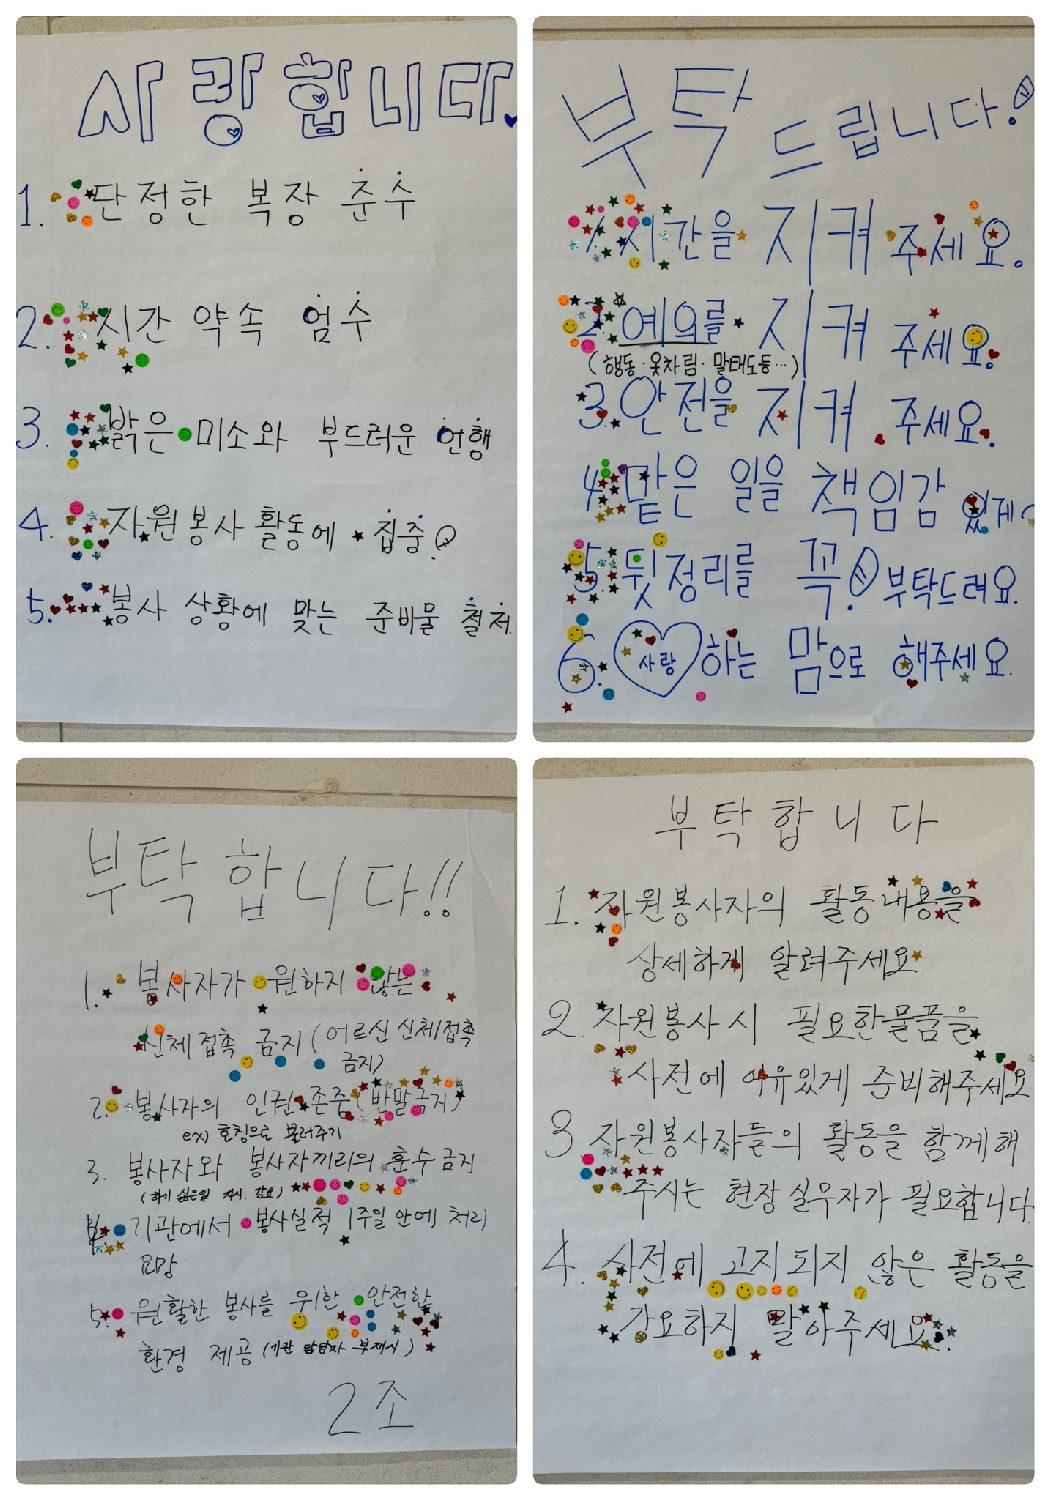 사랑합니다.
1. 단정한 복장 준수
2. 시간 약속 엄수
3. 밝은 미소와 부드러운 언행
4. 자원봉사 활동에 집중!
5. 봉사 상황에 맞는 준비물 철저
부탁드립니다!
1. 시간을 지켜 주세요.
2. 예의를 지켜 주세요.
(행동·옷차림·말태도등…)
3. 안전을 지켜 주세요.
4. 맡은 일을 책임감 있게
5. 뒷정리를 꼭! 부탁드려요.
6. 사랑하는 맘으로 해주세요.
부탁합니다!!
1. 봉사자가 원하지 않는
신체접촉 금지(어르신 신체접촉
금지)
2. 봉사자의 인권 존중(반말금지)
ex) 호칭으로 불러주기
3. 봉사자와 봉사자끼리의 훈수금지
(하기 싫은일 지시. 강요)
4. 기관에서 봉사실적 1주일 안에 처리
요망
5. 원활한 봉사를 위한 안전한
환경 제공 (기관 담당자 부재시)
2조
부탁합니다
1. 자원봉사자의 활동내용을
상세하게 알려주세요
2. 자원봉사시 필요한물품을
사전에 여유있게 준비해주세요
3 자원봉사자들의 활동을 함께해
주시는 현장실무자가 필요합니다
4. 사전에 고지되지 않은 활동을
강요하지 말아주세요.